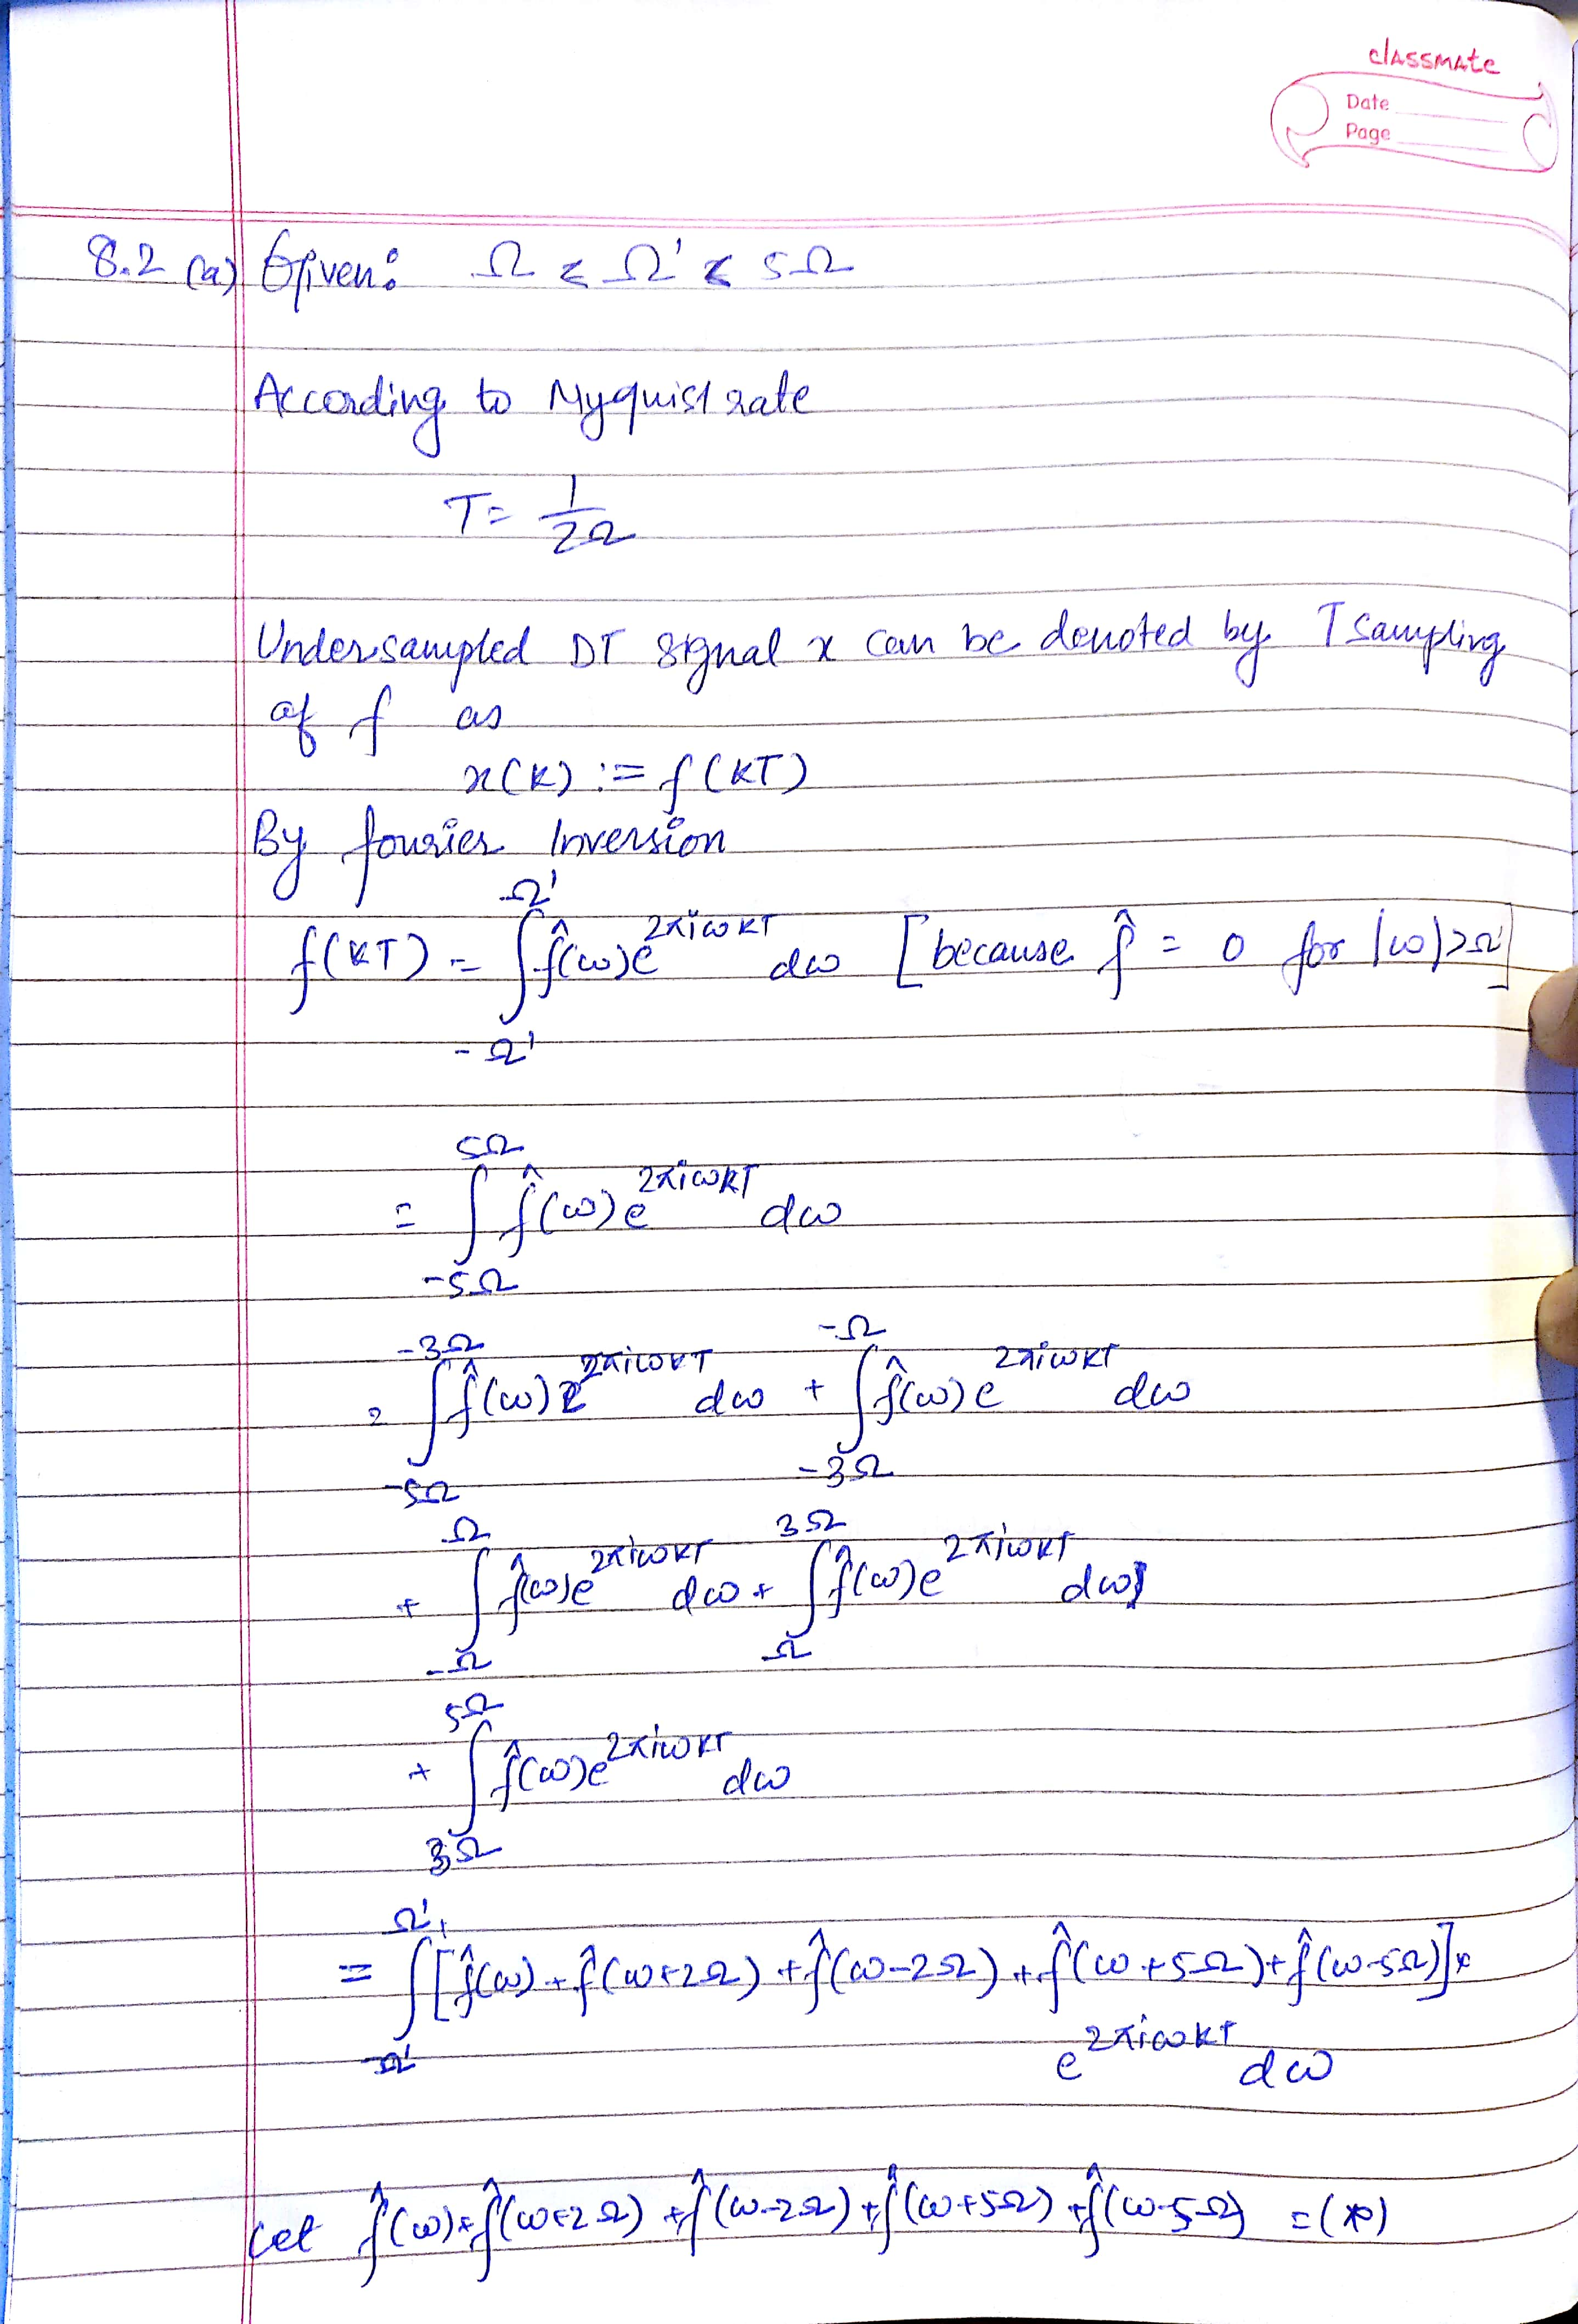 classmate
Date
Page
8.2 (a) Given: Ω < Ω' < 5Ω
According to Nyquist rate
T = 1/2Ω
Undersampled DT signal x can be denoted by T sampling
of f as
x(k) := f(kT)
By fourier Inversion
f(kT) = ∫_{-Ω'}^{Ω'} f̂(ω)e^{2πiωkT} dω [because f̂ = 0 for |ω|>Ω']
= ∫_{-5Ω}^{5Ω} f̂(ω)e^{2πiωkT} dω
= ∫_{-5Ω}^{-3Ω} f̂(ω)e^{2πiωkT} dω + ∫_{-3Ω}^{-Ω} f̂(ω)e^{2πiωkT} dω
+ ∫_{-Ω}^{Ω} f̂(ω)e^{2πiωkT} dω + ∫_{Ω}^{3Ω} f̂(ω)e^{2πiωkT} dω
+ ∫_{3Ω}^{5Ω} f̂(ω)e^{2πiωkT} dω
= ∫_{-Ω'}^{Ω'} [f̂(ω) + f̂(ω+2Ω) + f̂(ω-2Ω) + f̂(ω+5Ω) + f̂(ω-5Ω)] ×
e^{2πiωkT} dω
Let f̂(ω) + f̂(ω+2Ω) + f̂(ω-2Ω) + f̂(ω+5Ω) + f̂(ω-5Ω) = (*)